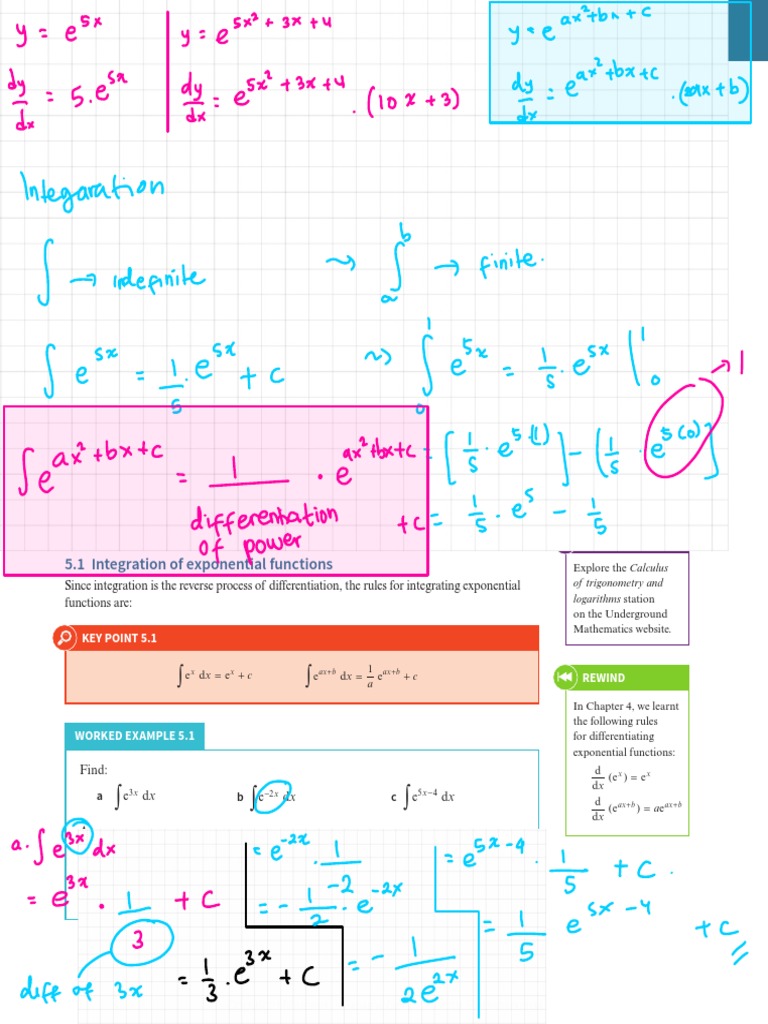 y = e^{5x}
dy/dx = 5.e^{5x}
y = e^{5x²+3x+4}
dy/dx = e^{5x²+3x+4} . (10x+3)
y = e^{ax²+bx+c}
dy/dx = e^{ax²+bx+c} .(2ax+b)
Integaration
∫ → indefinite ⤳ ∫_a^b → finite.
∫ e^{5x} = 1/5 . e^{5x} + c ⤳ ∫_0^1 e^{5x} = 1/5 . e^{5x} |_0^1 → 1
∫ e^{ax²+bx+c} = 1/(differentiation of power) . e^{ax²+bx+c} + c
= [1/5 . e^{5(1)}] - (1/5 . e^{5(0)}]
= 1/5 . e^5 - 1/5
5.1 Integration of exponential functions
Since integration is the reverse process of differentiation, the rules for integrating exponential
functions are:
Explore the Calculus
of trigonometry and
logarithms station
on the Underground
Mathematics website.
KEY POINT 5.1
∫ e^x dx = e^x + c ∫ e^{ax+b} dx = 1/a e^{ax+b} + c
REWIND
In Chapter 4, we learnt
the following rules
for differentiating
exponential functions:
d/dx (e^x) = e^x
d/dx (e^{ax+b}) = ae^{ax+b}
WORKED EXAMPLE 5.1
Find:
a ∫ e^{3x} dx b ∫ e^{-2x} dx c ∫ e^{5x-4} dx
a. ∫ e^{3x} dx
= e^{3x} . 1/3 + c
diff of 3x
= 1/3 . e^{3x} + c
= e^{-2x} . 1/-2
= - 1/2 . e^{-2x}
= - 1/2e^{2x}
= e^{5x-4} . 1/5 + c .
= 1/5 e^{5x-4} + c